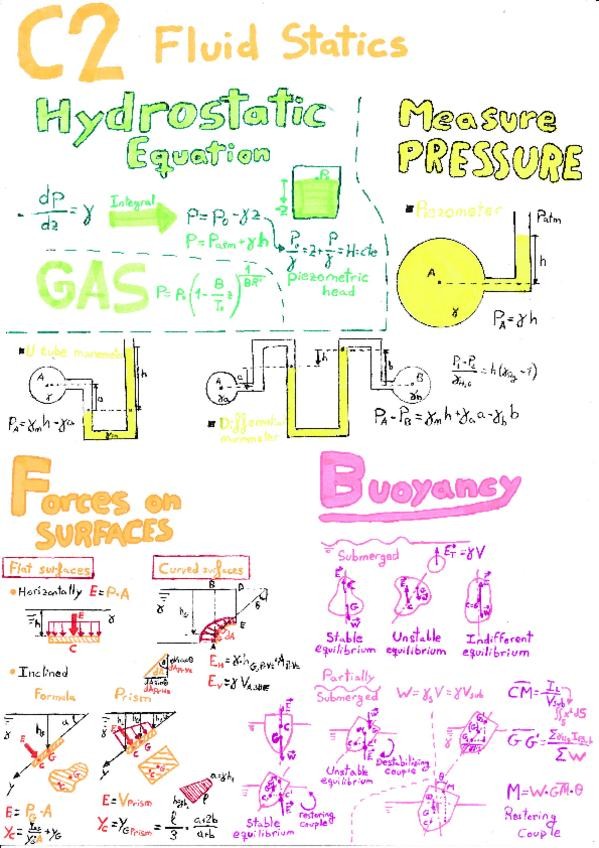 C2 Fluid Statics
Hydrostatic
Equation
dp/dz = γ
Integral
P = P₀ - γz
P = Patm + γh
P₀/γ = z + P/γ = H = cte
piezometric
head
GAS
P = P₀(1 - B/T₀ z)^(1/BR)
Measure
PRESSURE
Piezometer
Patm
h
A
γ
P_A = γh
U tube manometer
A
γ
a
h
γm
P_A = γm h - γa
Differential
manometer
A
γa
a
h
b
B
γb
P_A - P_B = γm h + γa a - γb b
Forces on
SURFACES
Flat surfaces
Horizontally E = P·A
h
E
C
Inclined
Formula
Prism
E = P_G · A
E = V Prism
Y_C = Y_G Prism = l/3 · (a+2b)/(a+b)
a=γh₁
Curved surfaces
B
D
E
A
E_V = γ V
Buoyancy
Submerged
E_T = γV
Stable
equilibrium
Unstable
equilibrium
Indifferent
equilibrium
Partially
Submerged
W = γs V = γ Vsub
Unstable
equilibrium
Destabilizing
couple
Stable
equilibrium
restoring
couple
M = W·GM·θ
Restoring
Couple